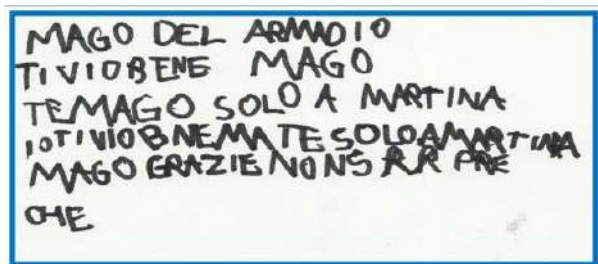 MAGO DEL ARMADIO
TI VIO BENE MAGO
TEMAGO SOLO A MARTINA
IOTIVIOBNEMATESOLOAMARTINA
MAGO GRAZIE NONS RR PRE
CHE